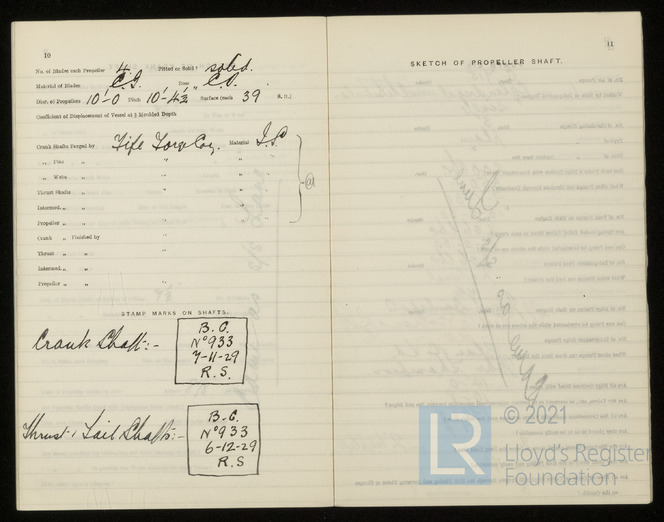 10
No. of Blades each Propeller 4 Fitted or Solid? solid.
Material of Blades C.I. Boss C.I.
Diam. of Propellers 10'-0 Pitch 10'-4½" Surface (each 39 S. ft.)
Coefficient of Displacement of Vessel at ¾ Moulded Depth
Crank Shafts Forged by Fife Forge Coy. Material I.S.
„ Pins „ „
„ Webs „ „
Thrust Shafts „ „
Intermed. „ „ „
Propeller „ „ „
Crank „ Finished by „
Thrust „ „ „
Intermed. „ „ „
Propeller „ „ „
STAMP MARKS ON SHAFTS.
Crank Shaft:-
B.C.
Nº 933
7-11-29
R.S.
Thrust, Tail Shafts:-
B.C.
Nº 933
6-12-29
R.S
11
SKETCH OF PROPELLER SHAFT.
LR
© 2021
Lloyd's Register
Foundation